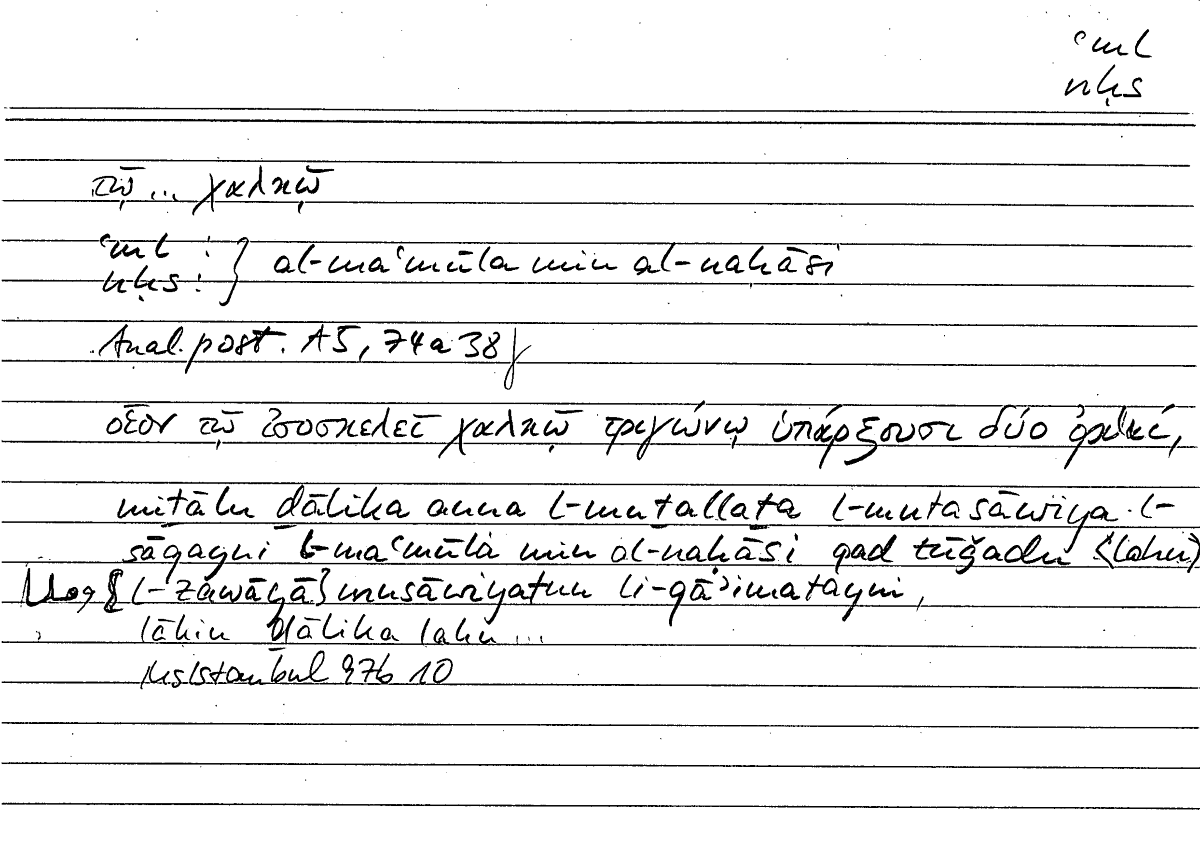 ʿml
nḥs
τῷ ... χαλκῷ
ʿml :
nḥs : } al-maʿmūla min al-naḥāsi
Anal. post. A5, 74a38f
οἷον τῷ ἰσοσκελεῖ χαλκῷ τριγώνῳ ὑπάρξουσι δύο ὀρθαί,
miṯālu ḏālika anna l-muṯallaṯa l-mutasāwiya l-
sāqayni l-maʿmūla min al-naḥāsi qad tūǧadu <lahu>
{l-zawāyā} musāwiyatun li-qāʾimatayni,
lākin ḏālika lahu ...
Ms Istanbul 97b 10